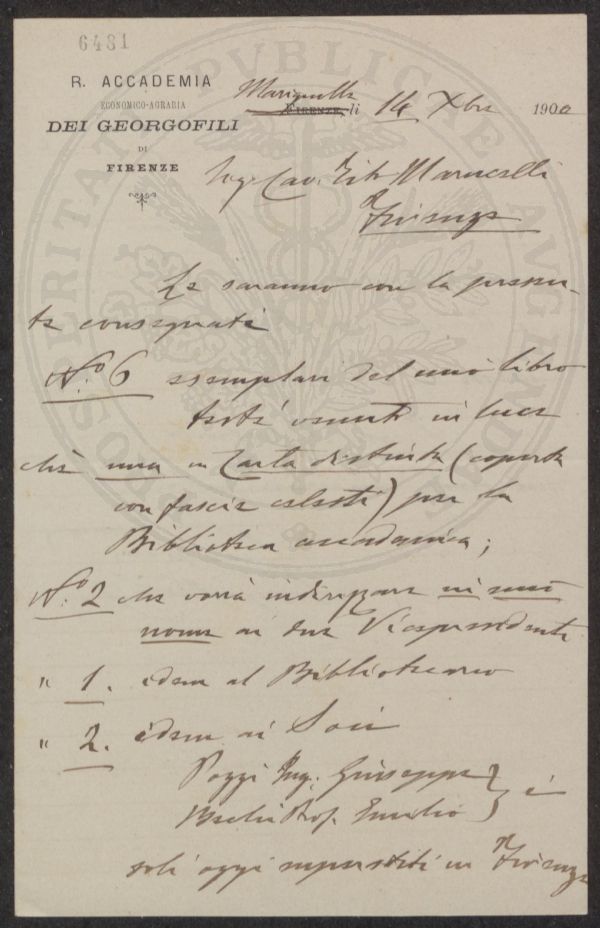 6481
R. ACCADEMIA
ECONOMICO-AGRARIA
DEI GEORGOFILI
DI
FIRENZE
Marignolle
FIRENZE, li 14 Xbre 1900
Ing. Cav. Tito Marucelli
Firenze
Le saranno con la presen-
te consegnati
N.o 6 esemplari del mio libro
testè venuto in luce
chè una in Carta distinta (coperta
con fascie celesti) per la
Biblioteca accademica;
N.o 2 che vorrà indirizzare in mio
nome ai due Vicepresidenti
" 1. idem al Bibliotecario
" 2. idem ai Soci
Poggi Ing. Giuseppe
Prof. Emilio } i
soli oggi superstiti in Firenze
PUBLICAE
PROSPERITATI
AUGENDAE